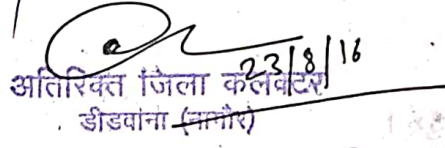 23/8/16
अतिरिक्त जिला कलेक्टर
डीडवाना (नागौर)